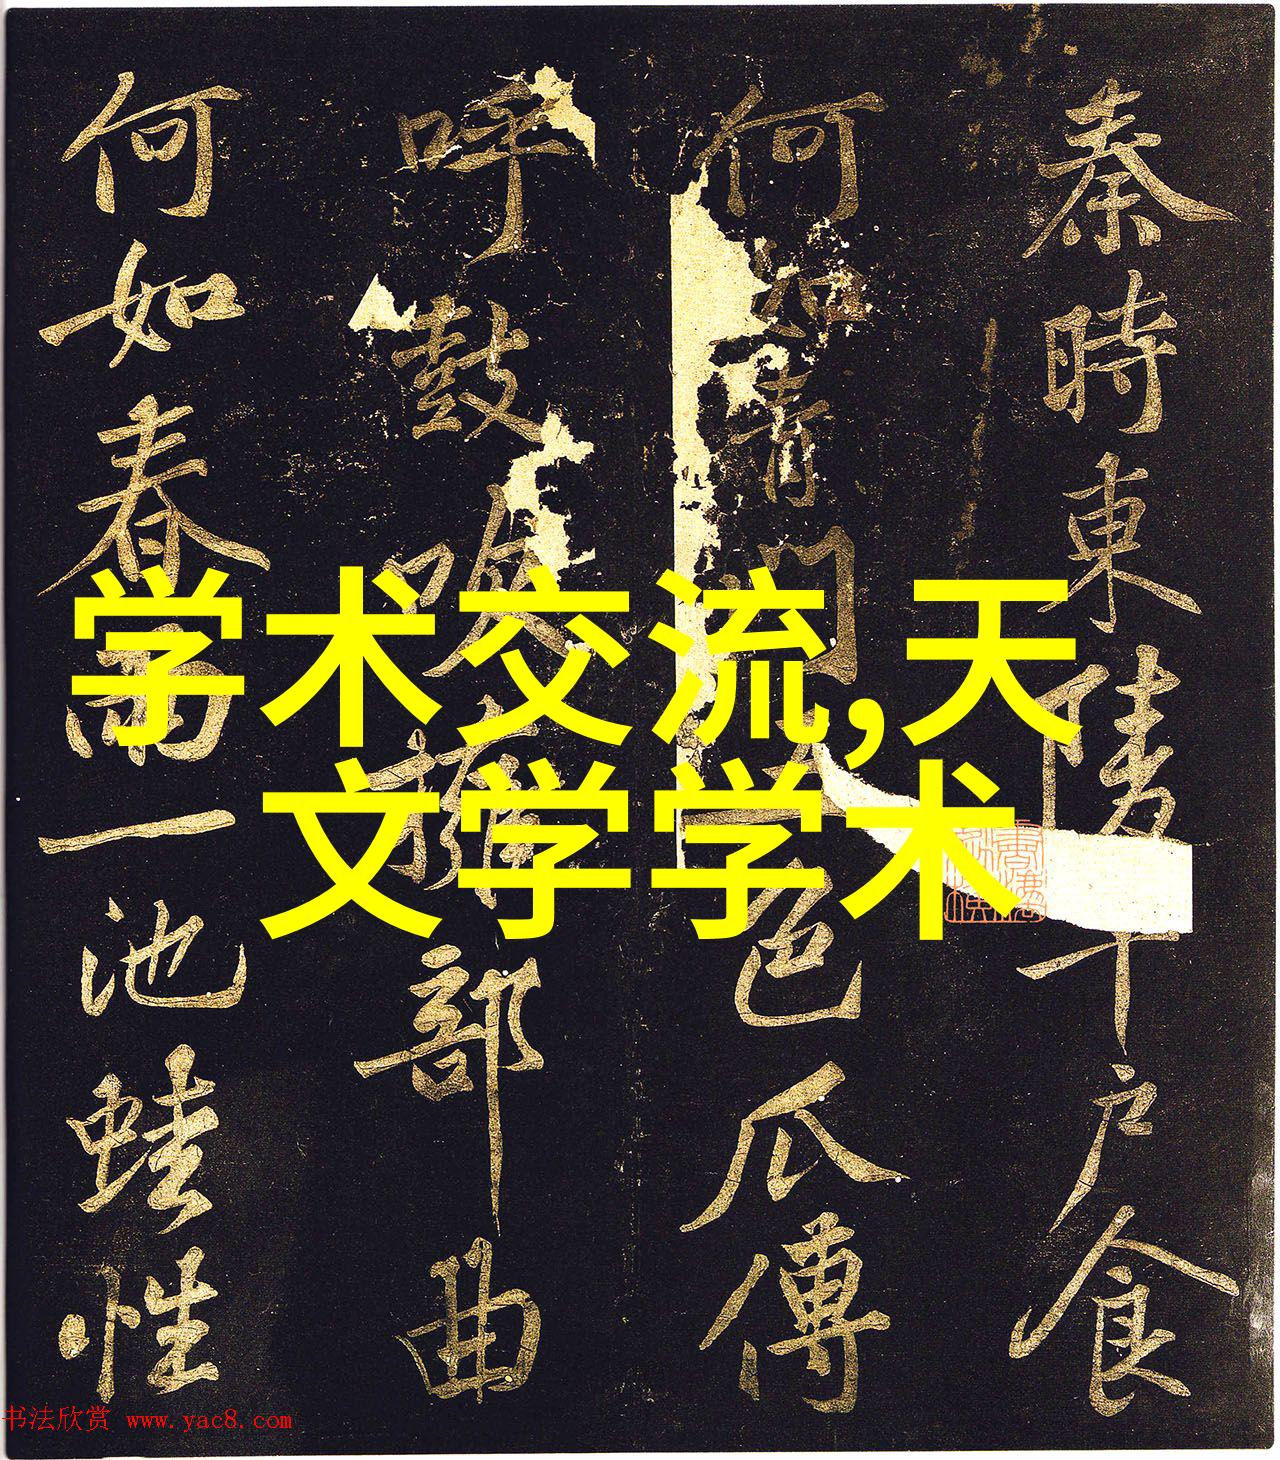 秦時東陵千戶食
何如青門五色瓜傳
呼鼓吹擁部曲
何如春雨一池蛙性
学术交流,天
文学学术
书法欣赏 www.yac8.com